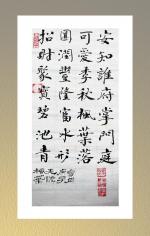 安知誰府掌門庭
可愛季秋楓葉落
圓潤豐隆富水形
招財聚寶碧池青